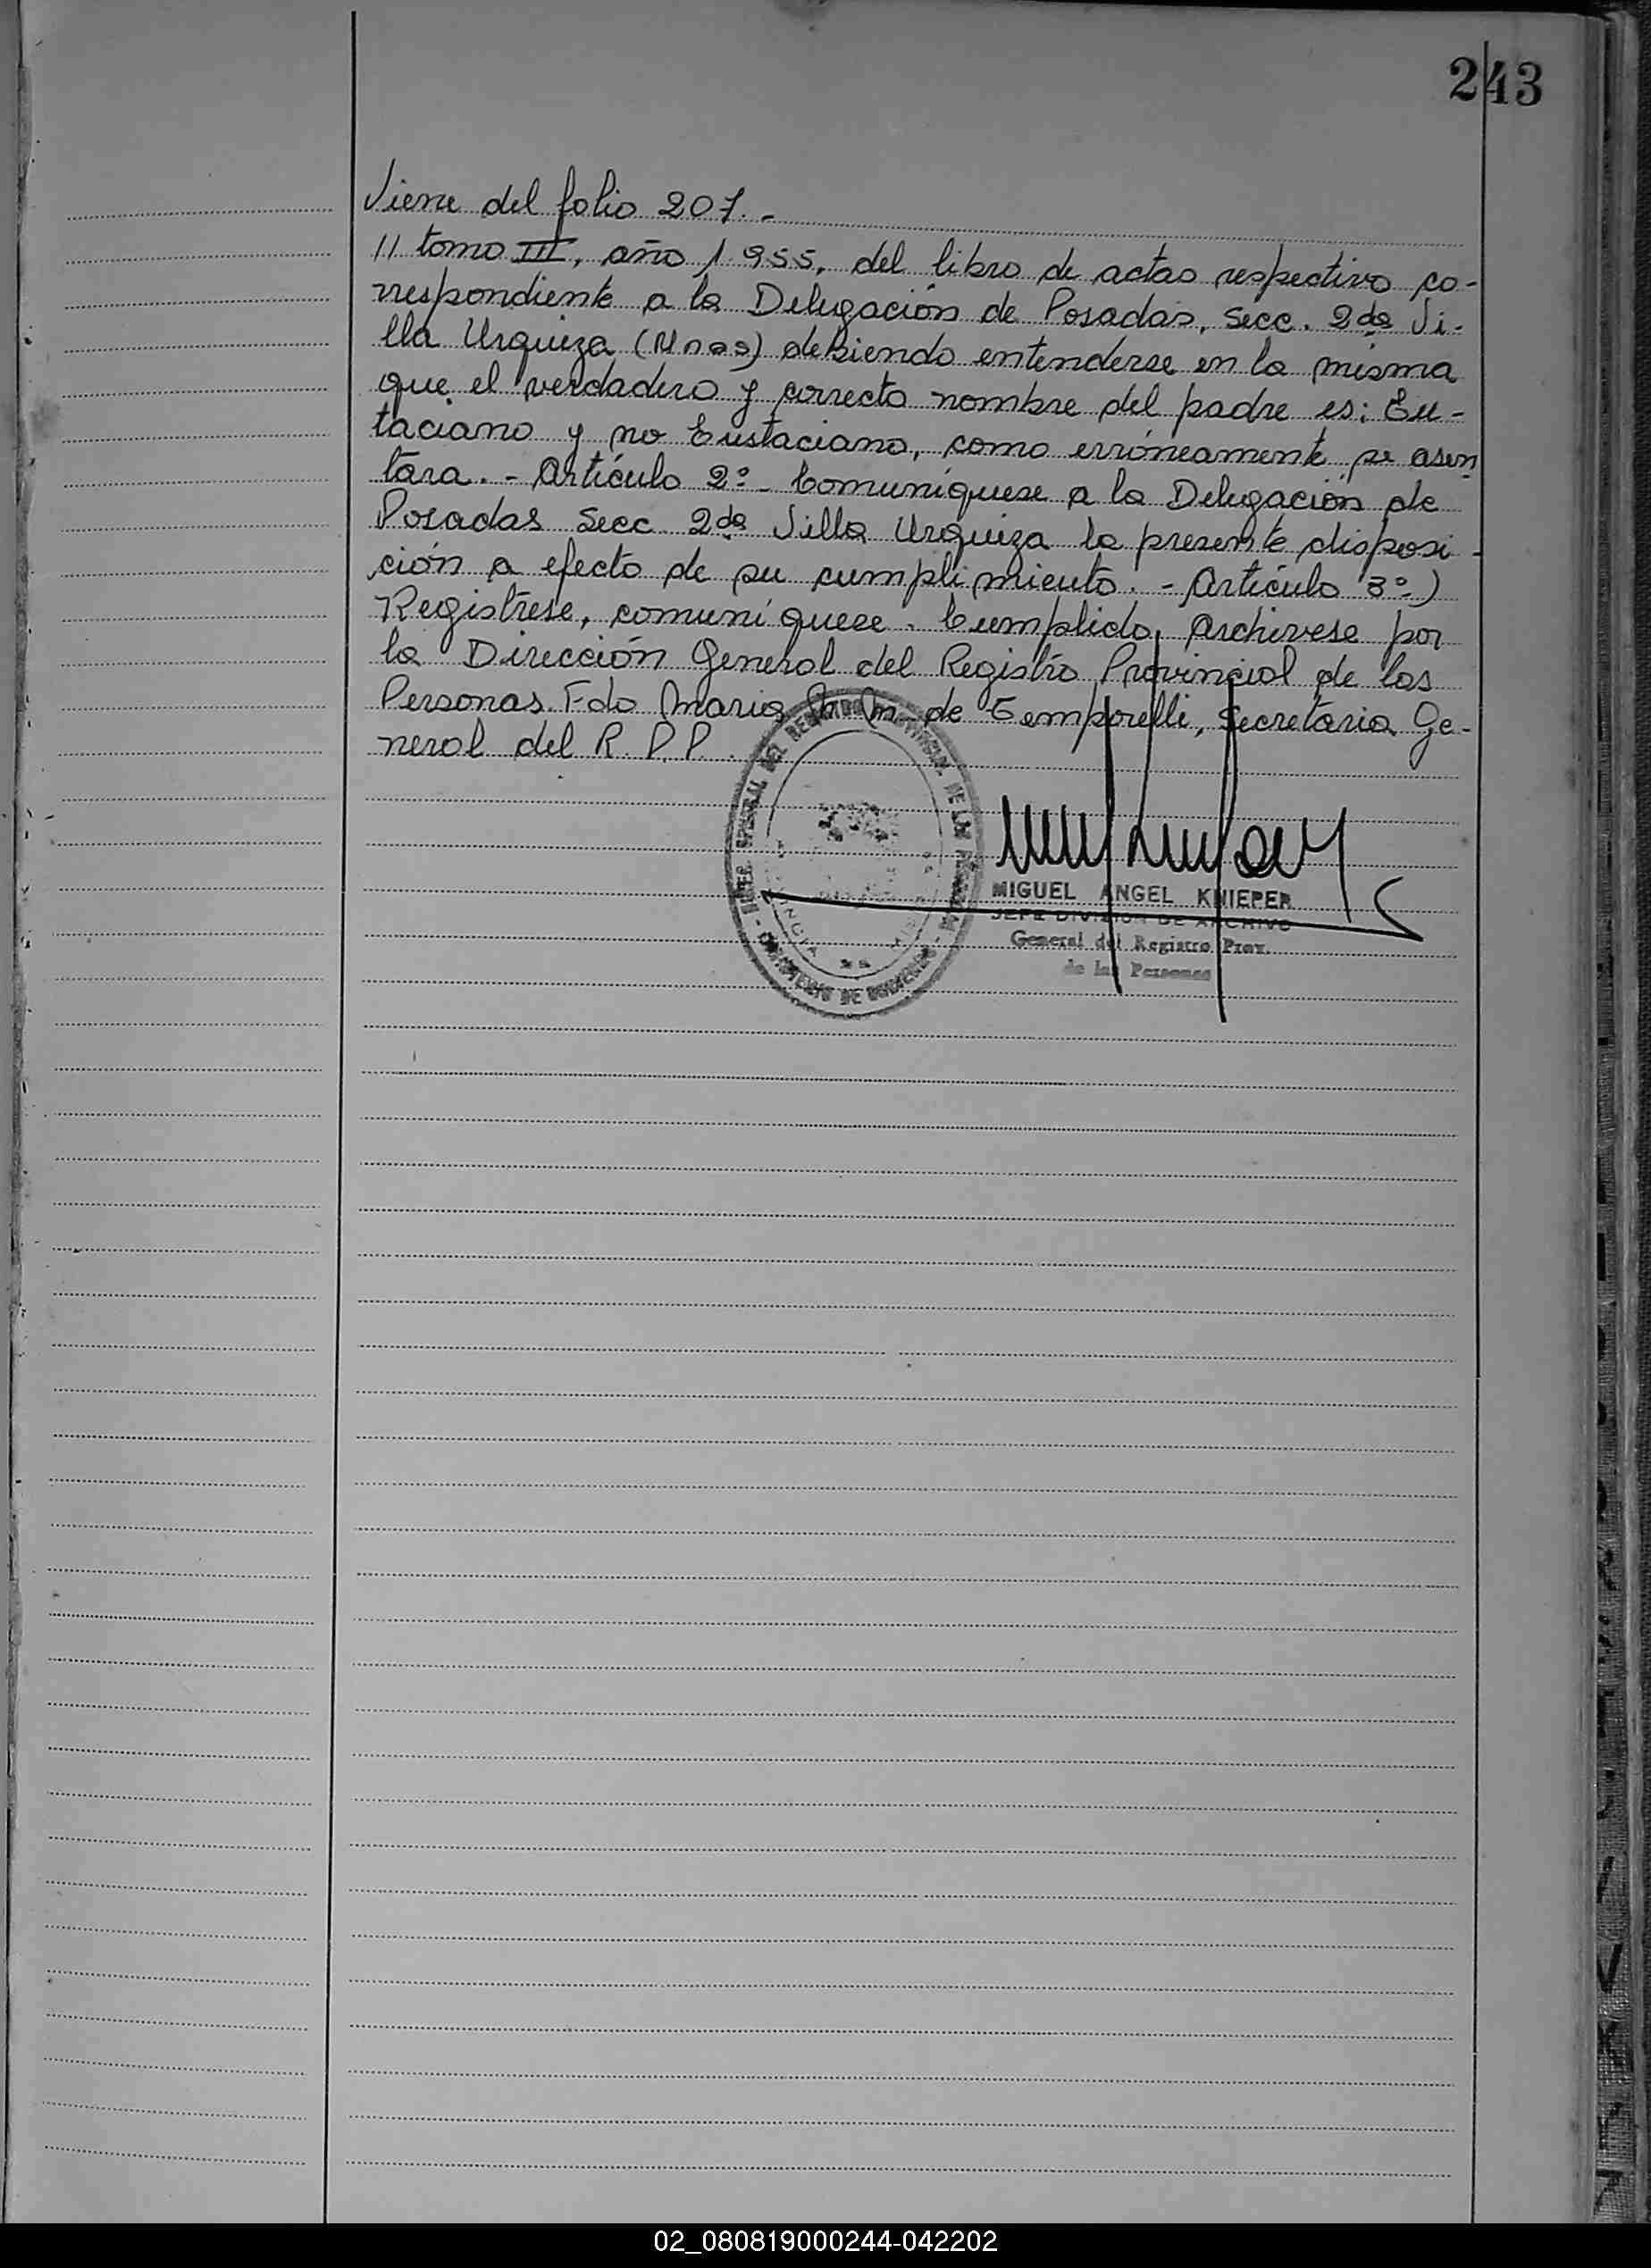 243
Viene del folio 207.-
// tomo III, año 1.955, del libro de actas respectivo co-
rrespondiente a la Delegación de Posadas, Secc. 2da Vi-
lla Urquiza (Mnes) debiendo entenderse en la misma
que el verdadero y correcto nombre del padre es: Eu-
taciano y no Eustaciano, como erróneamente se asen
tara.- Artículo 2º- Comuníquese a la Delegación de
Posadas Secc. 2da Villa Urquiza la presente disposi-
ción a efecto de su cumplimiento.- Artículo 3º.)
Regístrese, comuníquese. Cumplido, Archívese por
la Dirección General del Registro Provincial de las
Personas. Fdo Maria M. de Temporelli, Secretaria Ge-
neral del R.P.P.
GENERAL DEL REGISTRO PROVINCIAL DE LAS PERSONAS
MINISTERIO DE GOBIERNO
MIGUEL ANGEL KNIEPER
JEFE DIVISION DE ARCHIVO
General del Registro Prov.
de las Personas
02_080819000244-042202